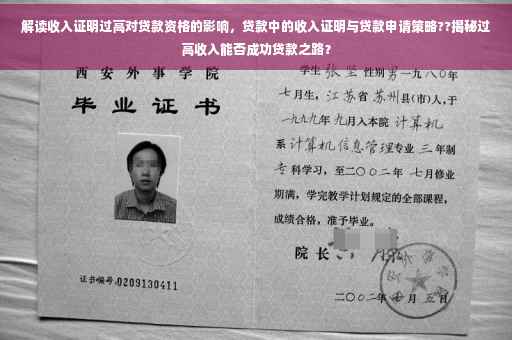 解读收入证明过高对贷款资格的影响，贷款中的收入证明与贷款申请策略??揭秘过
高收入能否成功贷款之路?
西安外事学院
毕业证书
证书编号:0209130411
学生张坚性别男一九八〇年
七月生，江苏省苏州县(市)人，于
一九九九年九月入本院计算机
系计算机信息管理专业三年制
专科学习，至二〇〇二年七月修业
期满，学完教学计划规定的全部课程，
成绩合格，准予毕业。
院长
二〇〇二年七月五日